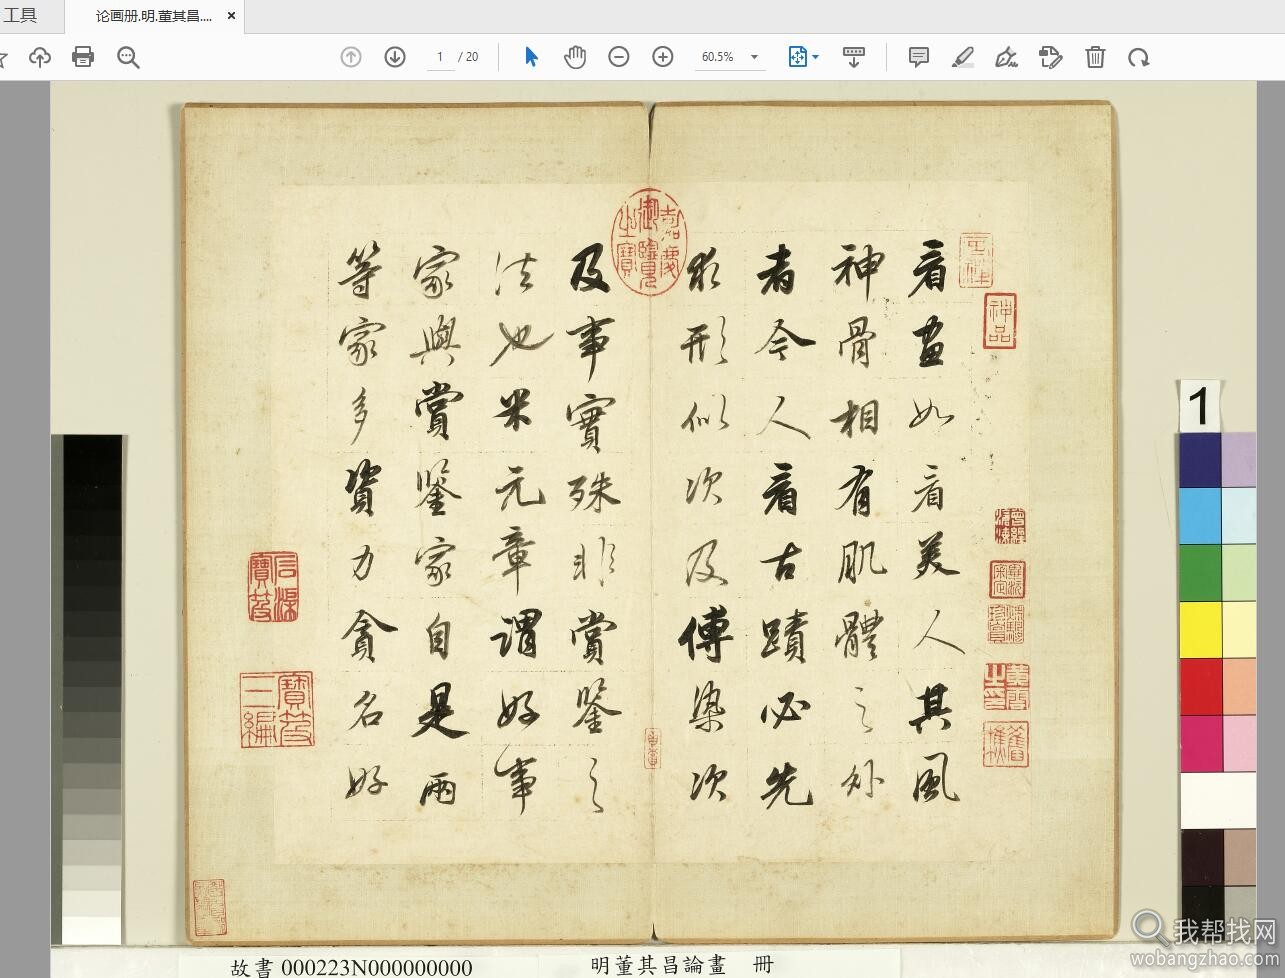 工具
论画册.明.董其昌....
1 / 20
60.5%
看畫如看美人其風
神骨相有肌體之外
者今人看古蹟必先
求形似次及傅染次
及事實殊非賞鑒之
法也米元章謂好事
家與賞鑒家自是兩
等家多資力貪名好
嘉慶御覽之寶
神品
寶笈三編
1
故書 000223N000000000
明董其昌論畫 冊
我帮找网
wobangzhao.com